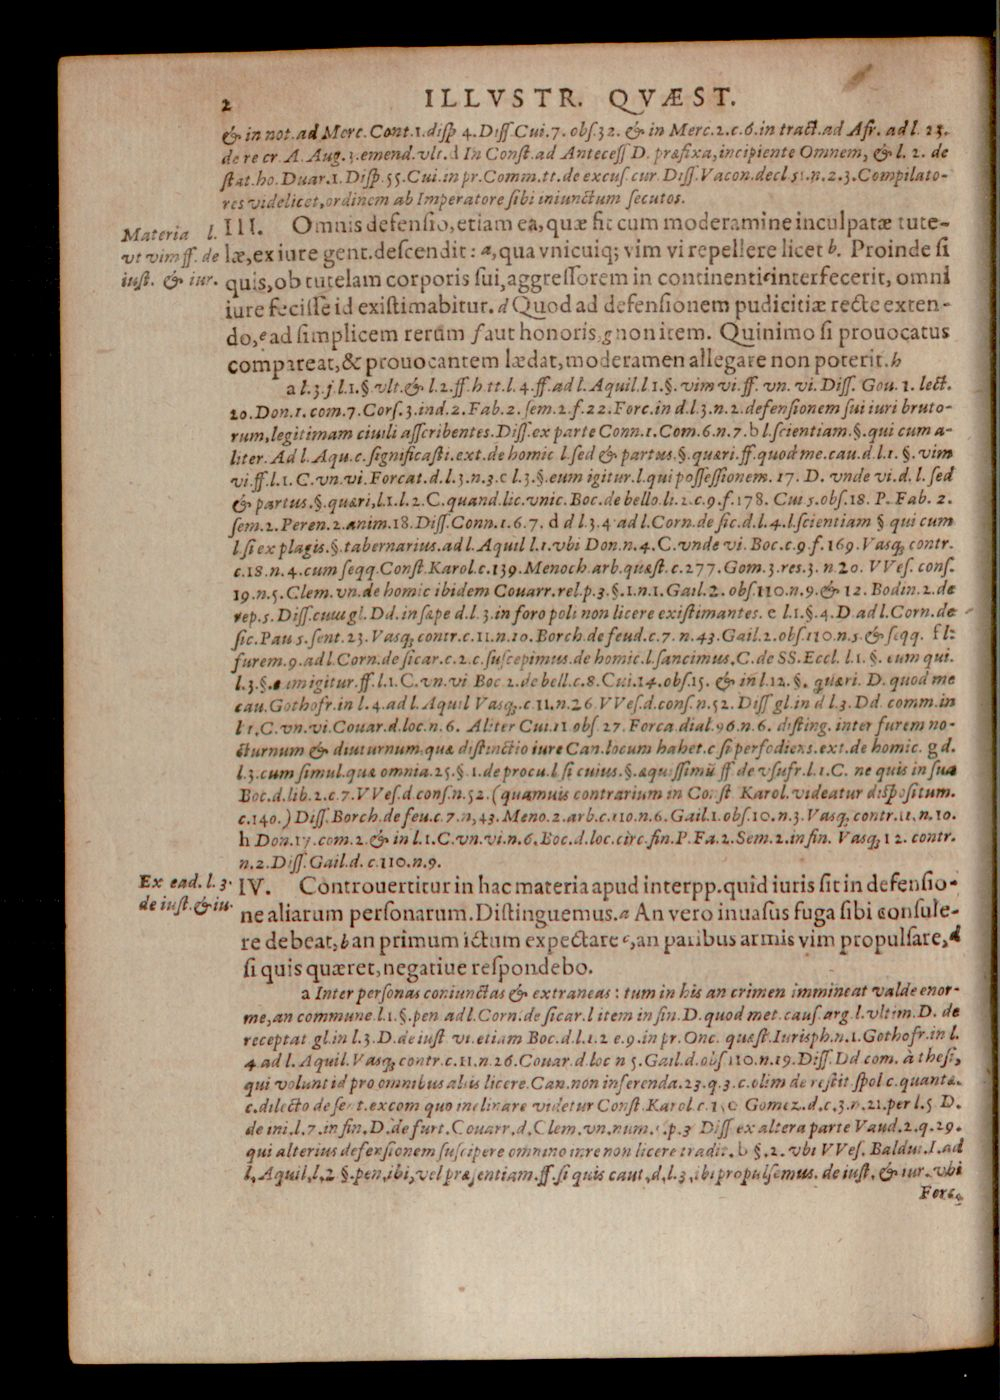 2 ILLVSTR. QVÆST.
& in not. ad Merc. Cont. 1. disp 4. Diss. Cui. 7. obs. 32. & in Merc. 2. c. 6. in tract. ad Afr. ad l. 23.
de re cr. A. Aug. 3. emend. vlt. d In Const. ad Antecess D. præfixa, incipiente Omnem, & l. 2. de
stat. ho. Duar. 1. Disp. 55. Cui. in pr. Comm. tt. de excus. cur. Diss. Vacon. decl 51. n. 2. 3. Compilato-
res videlicet, ordinem ab Imperatore sibi iniunctum secutos.
Materia l.
vt vim ff. de
iust. & iur.
III. Omnis defensio, etiam ea, quæ fit cum moderamine inculpatæ tute-
læ, ex iure gent. descendit: a, qua vnicuiq; vim vi repellere licet b. Proinde si
quis, ob tutelam corporis sui, aggressorem in continenti c interfecerit, omni
iure fecisse id existimabitur. d Quod ad defensionem pudicitiæ recte exten-
do, e ad simplicem rerum f aut honoris, g non item. Quinimo si prouocatus
compareat, & prouocantem lædat, moderamen allegare non poterit. h
a l. 3. j. l. 1. §. vlt. & l. 2. ff. h. tt. l. 4. ff. ad l. Aquil. l 1. §. vim vi. ff. vn. vi. Diss. Gou. 1. lect.
20. Don. 1. com. 7. Cors. 3. ind. 2. Fab. 2. sem. 2. f. 22. Forc. in d. l. 3. n. 2. defensionem sui iuri bruto-
rum, legitimam ciuili asscribentes. Diss. ex parte Conn. 1. Com. 6. n. 7. b l. scientiam. §. qui cum a-
liter. Ad l. Aqu. c. significasti. ext. de homic l. sed & partus. §. quæri. ff. quod me. cau. d. l. 1. §. vim
vi. ff. l. 1. C. vn. vi. Forcat. d. l. 3. n. 3. c l. 3. §. eum igitur. l. qui possessionem. 17. D. vnde vi. d. l. sed
& partus. §. quæri, l. 1. l. 2. C. quand. lic. vnic. Boc. de bello. li. 2. c. 9. f. 178. Cui 5. obs. 18. P. Fab. 2.
sem. 2. Peren. 2. anim. 18. Diss. Conn. 1. 6. 7. d d l. 3. 4 ad l. Corn. de sic. d. l. 4. l. scientiam § qui cum
l. si ex plagis. §. tabernarius. ad l. Aquil l. 1. vbi Don. n. 4. C. vnde vi. Boc. c. 9. f. 169. Vasq; contr.
c. 18. n. 4. cum seqq. Const. Karol. c. 139. Menoch. arb. quæst. c. 277. Gom. 3. res. 3. n. 20. VVes. cons.
19. n. 5. Clem. vn. de homic ibidem Couarr. rel. p. 3. §. 1. n. 1. Gail. 2. obs. 110. n. 9. & 12. Bodin. 2. de
rep. 5. Diss. cum gl. Dd. in sæpe d. l. 3. in foro poli non licere existimantes. e l. 1. §. 4. D. ad l. Corn. de
sic. Pau 5. sent. 23. Vasq; contr. c. 11. n. 10. Borch. de feud. c. 7. n. 43. Gail. 2. obs. 110. n. 5. & seqq. f l.
furem. 9. ad l. Corn. de sicar. c. 2. c. suscepimus. de homic. l. sancimus, C. de SS. Eccl. l. 1. §. cum qui.
l. 3. §. eum igitur. ff. l. 1. C. vn. vi Boc 2. de bell. c. 8. Cui. 14. obs. 15. & in l. 12. §. quæri. D. quod me
cau. Gothofr. in l. 4. ad l. Aquil Vasq; c. 11. n. 26. VVes. d. cons. n. 52. Diss gl. in d l. 3. Dd. comm. in
l 1. C. vn. vi. Couar. d. loc. n. 6. Aliter Cui. 11 obs. 27. Forca. dial. 96. n. 6. disting. inter furem no-
cturnum & diuturnum, quæ distinctio iure Can. locum habet. c si perfodiens. ext. de homic. g d.
l. 3. cum simul. quæ omnia. 25. § 1. de procu. l si cuius. §. æquissimũ ff de vsufr. l. 1. C. ne quis in sua
Boc. d. lib. 2. c. 7. VVes. d. cons. n. 52. (quamuis contrarium in Const Karol. videatur dispositum.
c. 140.) Diss. Borch. de feu. c. 7. n, 43. Meno. 2. arb. c. 110. n. 6. Gail. 1. obs. 10. n. 3. Vasq; contr. 11. n. 10.
h Don. 17. com. 2. & in l. 1. C. vn. vi. n. 6. Boc. d. loc. circ. fin. P. Fa. 2. Sem. 2. in fin. Vasq; 12. contr.
n. 2. Diss. Gail. d. c. 110. n. 9.
Ex ead. l. 3.
de iust. & iu.
IV. Controuertitur in hac materia apud interpp. quid iuris sit in defensio-
ne aliarum personarum. Distinguemus. a An vero inuasus fuga sibi consule-
re debeat, b an primum ictum expectare c, an paribus armis vim propulsare, d
si quis quæret, negatiue respondebo.
a Inter personas coniunctas & extraneas: tum in his an crimen immineat valde enor-
me, an commune. l. 1. §. pen ad l. Corn. de sicar. l item in fin. D. quod met. caus. arg. l. vltim. D. de
receptat gl. in l. 3. D. de iust vt etiam Boc. d. l. 1. 2 c. 9. in pr. Onc. quæst. Iurisph. n. 1. Gothofr. in l.
4 ad l. Aquil. Vasq; contr c. 11. n. 26. Couar. d. loc n 5. Gail. d. obs 110. n. 19. Diss. Dd com. à thesi,
qui volunt id pro omnibus aliis licere. Can. non inferenda. 23. q. 3. c. olim de restit. spol c. quantæ.
c. dilecto de sent. excom quo inclinare videtur Const. Karol. c. Gomez. d. c. 3. n. 21. per l. 5 D.
de ini. l. 7. in fin. D. de furt. Couarr. d. Clem. vn. num. p. 3 Diss ex altera parte Vaud. 2. q. 29.
qui alterius defensionem suscipere omnino iure non licere tradit. b §. 2. vbi VVes. Baldui. I. ad
l, Aquil, l, 2 §. pen, ibi, vel præsentiam. ff. si quis caut, d, l. 3, ibi propulsemus. de iust, & iur. vbi
Forca,